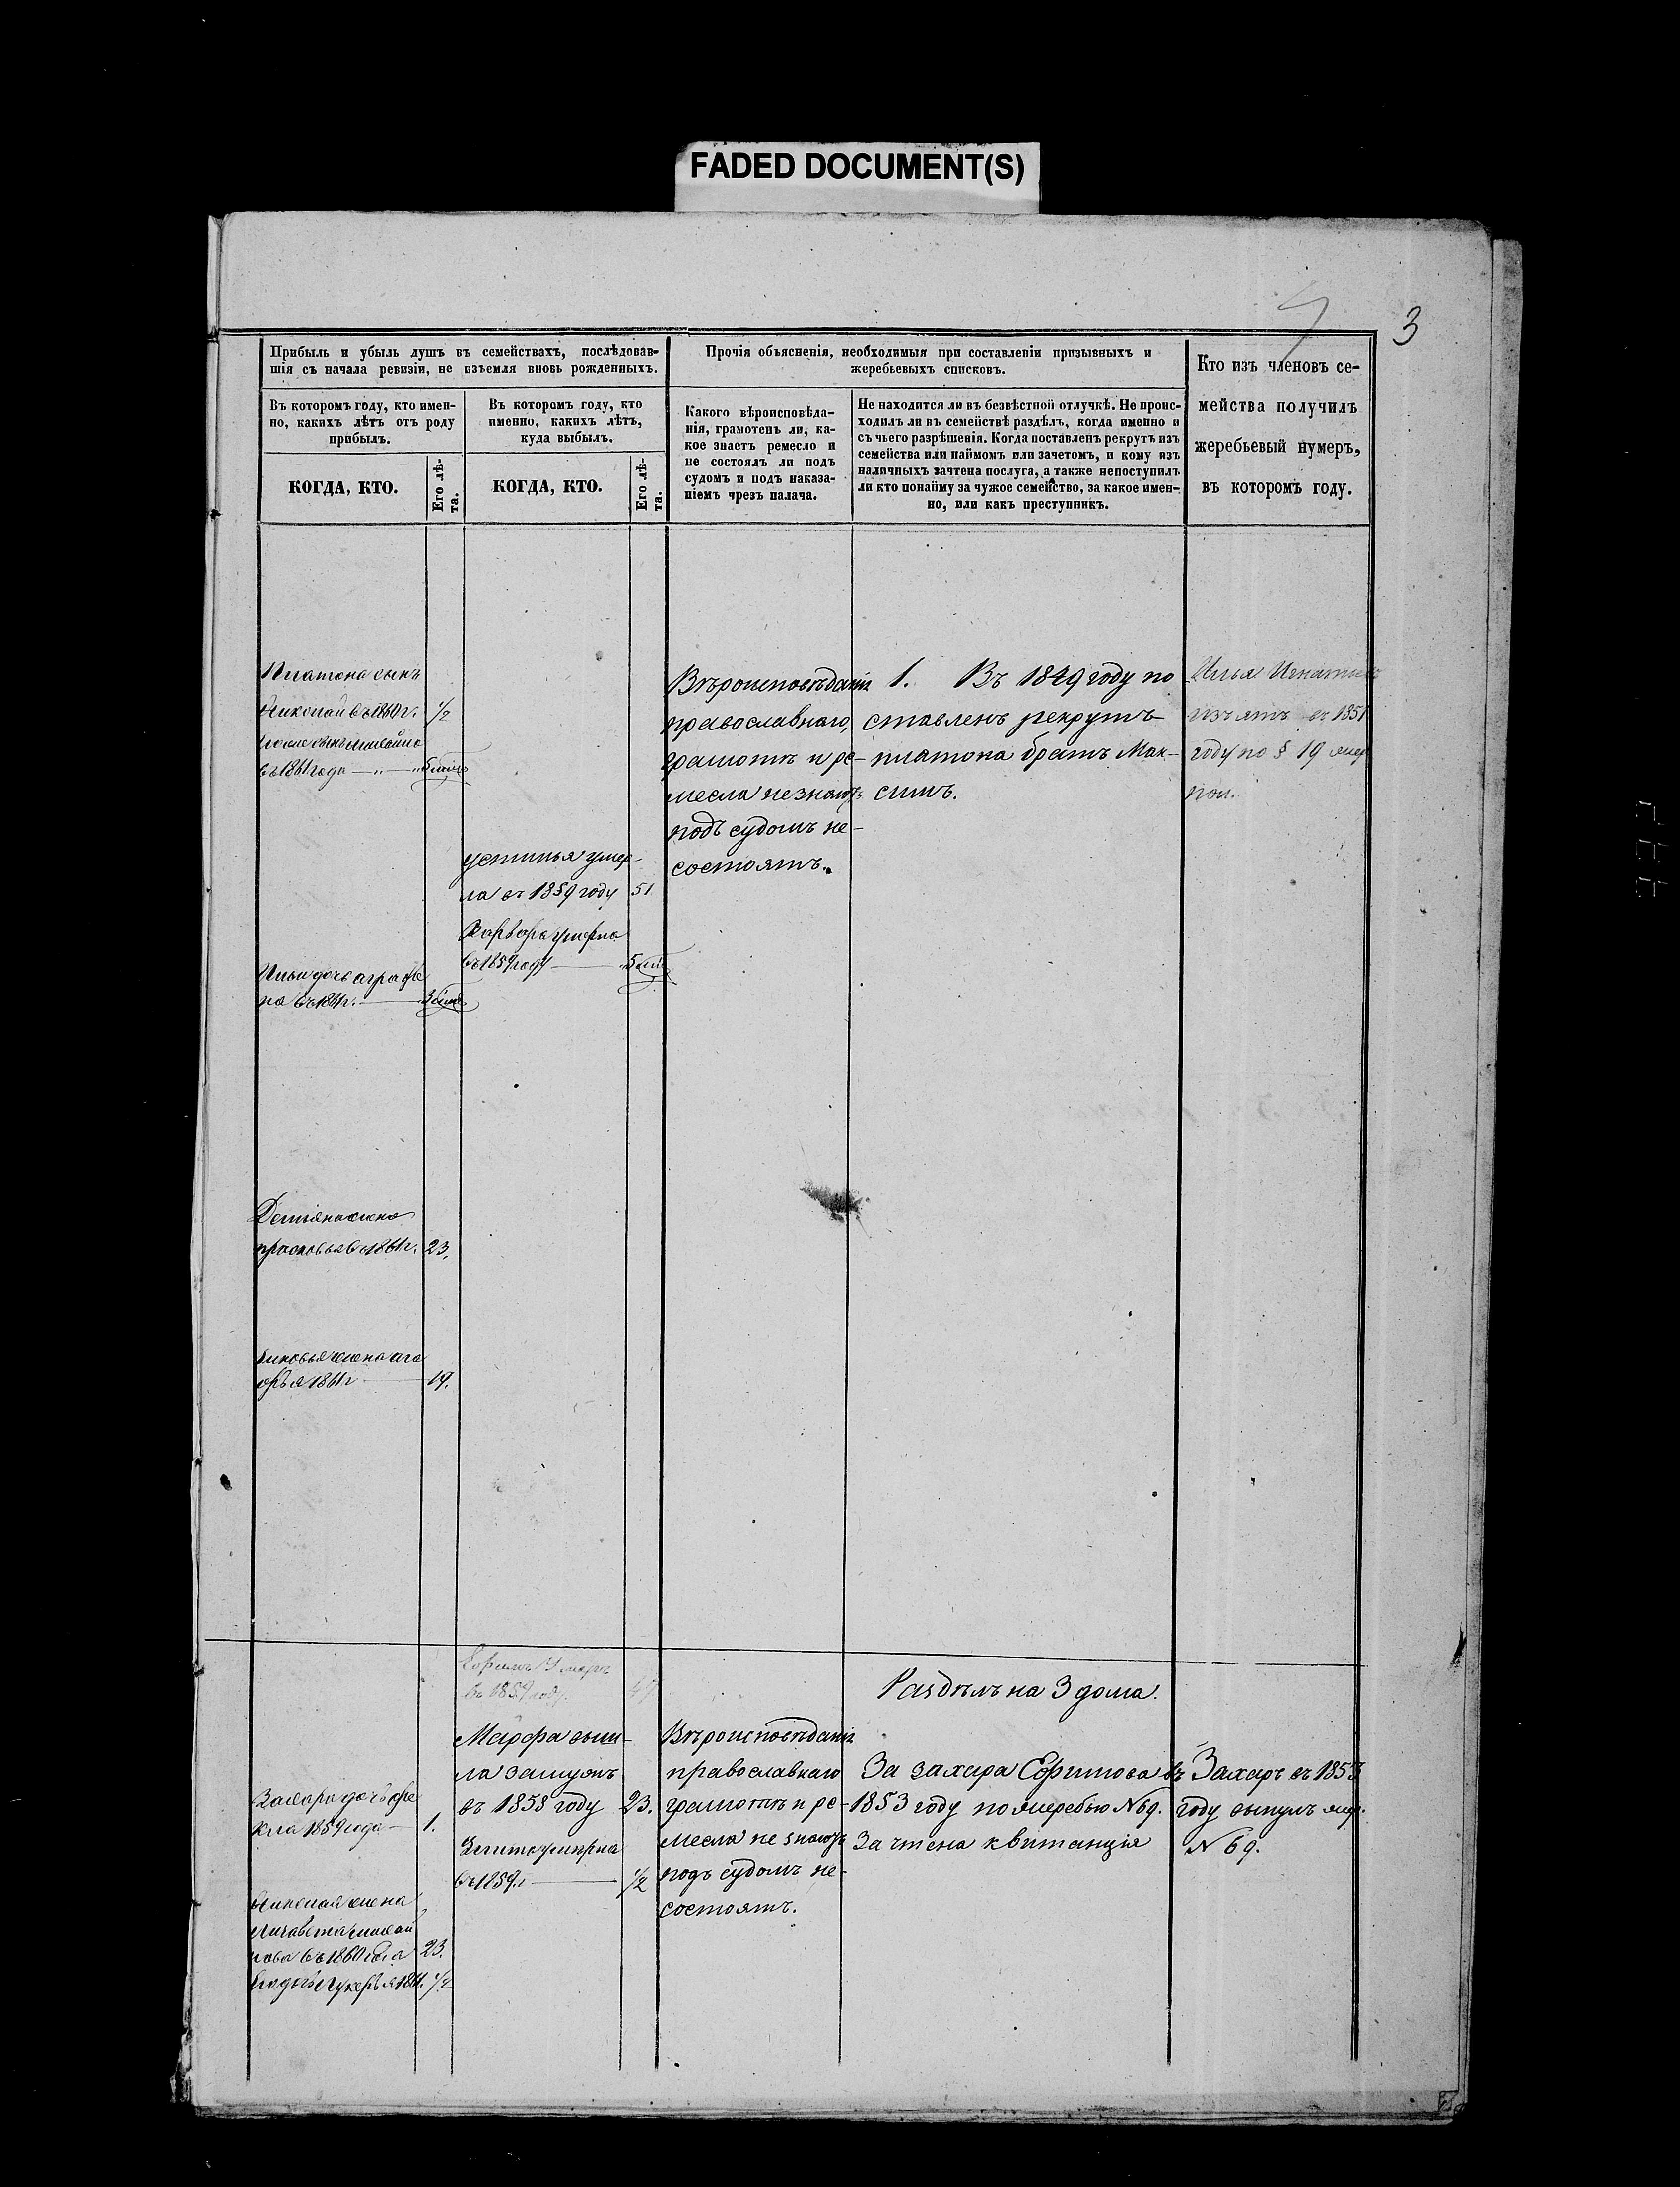 FADED DOCUMENT(S)
3
Прибыль и убыль душъ въ семействахъ, послѣдовав-
шія съ начала ревизіи, не изъемля вновь рожденныхъ.
Прочія объясненія, необходимыя при составленіи призывныхъ и
жеребьевыхъ списковъ.
Кто изъ членовъ се-
мейства получилъ
жеребьевый нумеръ,
въ которомъ году.
Въ которомъ году, кто имен-
но, какихъ лѣтъ отъ роду
прибылъ.
Въ которомъ году, кто
именно, какихъ лѣтъ,
куда выбылъ.
Какого вѣроисповѣда-
нія, грамотенъ ли, ка-
кое знаетъ ремесло и
не состоялъ ли подъ
судомъ и подъ наказа-
ніемъ чрезъ палача.
Не находится ли въ безвѣстной отлучкѣ. Не проис-
ходилъ ли въ семействѣ раздѣлъ, когда именно и
съ чьего разрѣшенія. Когда поставленъ рекрутъ изъ
семейства или наймомъ или зачетомъ, и кому изъ
наличныхъ зачтена послуга, а также непоступилъ
ли кто понайму за чужое семейство, за какое имен-
но, или какъ преступникъ.
КОГДА, КТО.
Его лѣ-
та.
КОГДА, КТО.
Его лѣ-
та.
Платона сынъ
Николай въ 1860 г. 1/2
въ 1861 года
Ильи дочь аграфе
на въ 1861 г.
прасковья въ 1861 г. 23.
1861 г 19.
устинья умер-
ла въ 1859 году 51
Варвара умерла
въ 1859 году
Вѣроисповѣданія
православнаго,
грамотѣ и ре-
месла незнаютъ
подъ судомъ не-
состоятъ.
1. Въ 1849 году по
ставленъ рекрутъ
платона братъ Мак-
симъ.
Илья
изъятъ въ 1851
году по § 19 жер
пол.
Ефимъ Умеръ
въ 1859 году.
Марфа выш-
ла замужъ
въ 1858 году 23.
умерла
въ 1859 г. 1/2
Захара дочь фе
кла 1859 года 1.
Николая жена
въ 1860 года 23.
1861. 1/2
Вѣроисповѣданія
православнаго
грамотѣ и ре-
месла не знаютъ
подъ судомъ не-
состоятъ.
Раздѣлъ на 3 дома.
За захара Ефимова въ
1853 году по жеребью N 69.
Зачтена квитанція
Захаръ въ 1853
году вынулъ жер.
N 69.